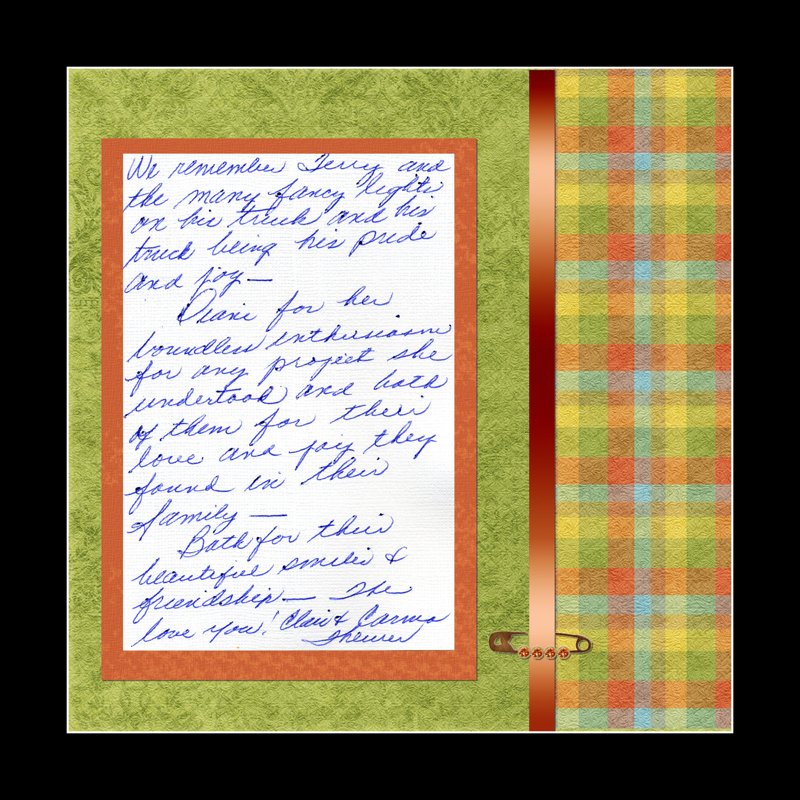 We remember Terry and
the many fancy lights
on his truck and his
truck being his pride
and joy —
Diane for her
boundless enthusiasm
for any project she
undertook and both
of them for their
love and joy they
found in their
family —
Both for their
beautiful smiles &
friendship — We
love you! Clair & Carma